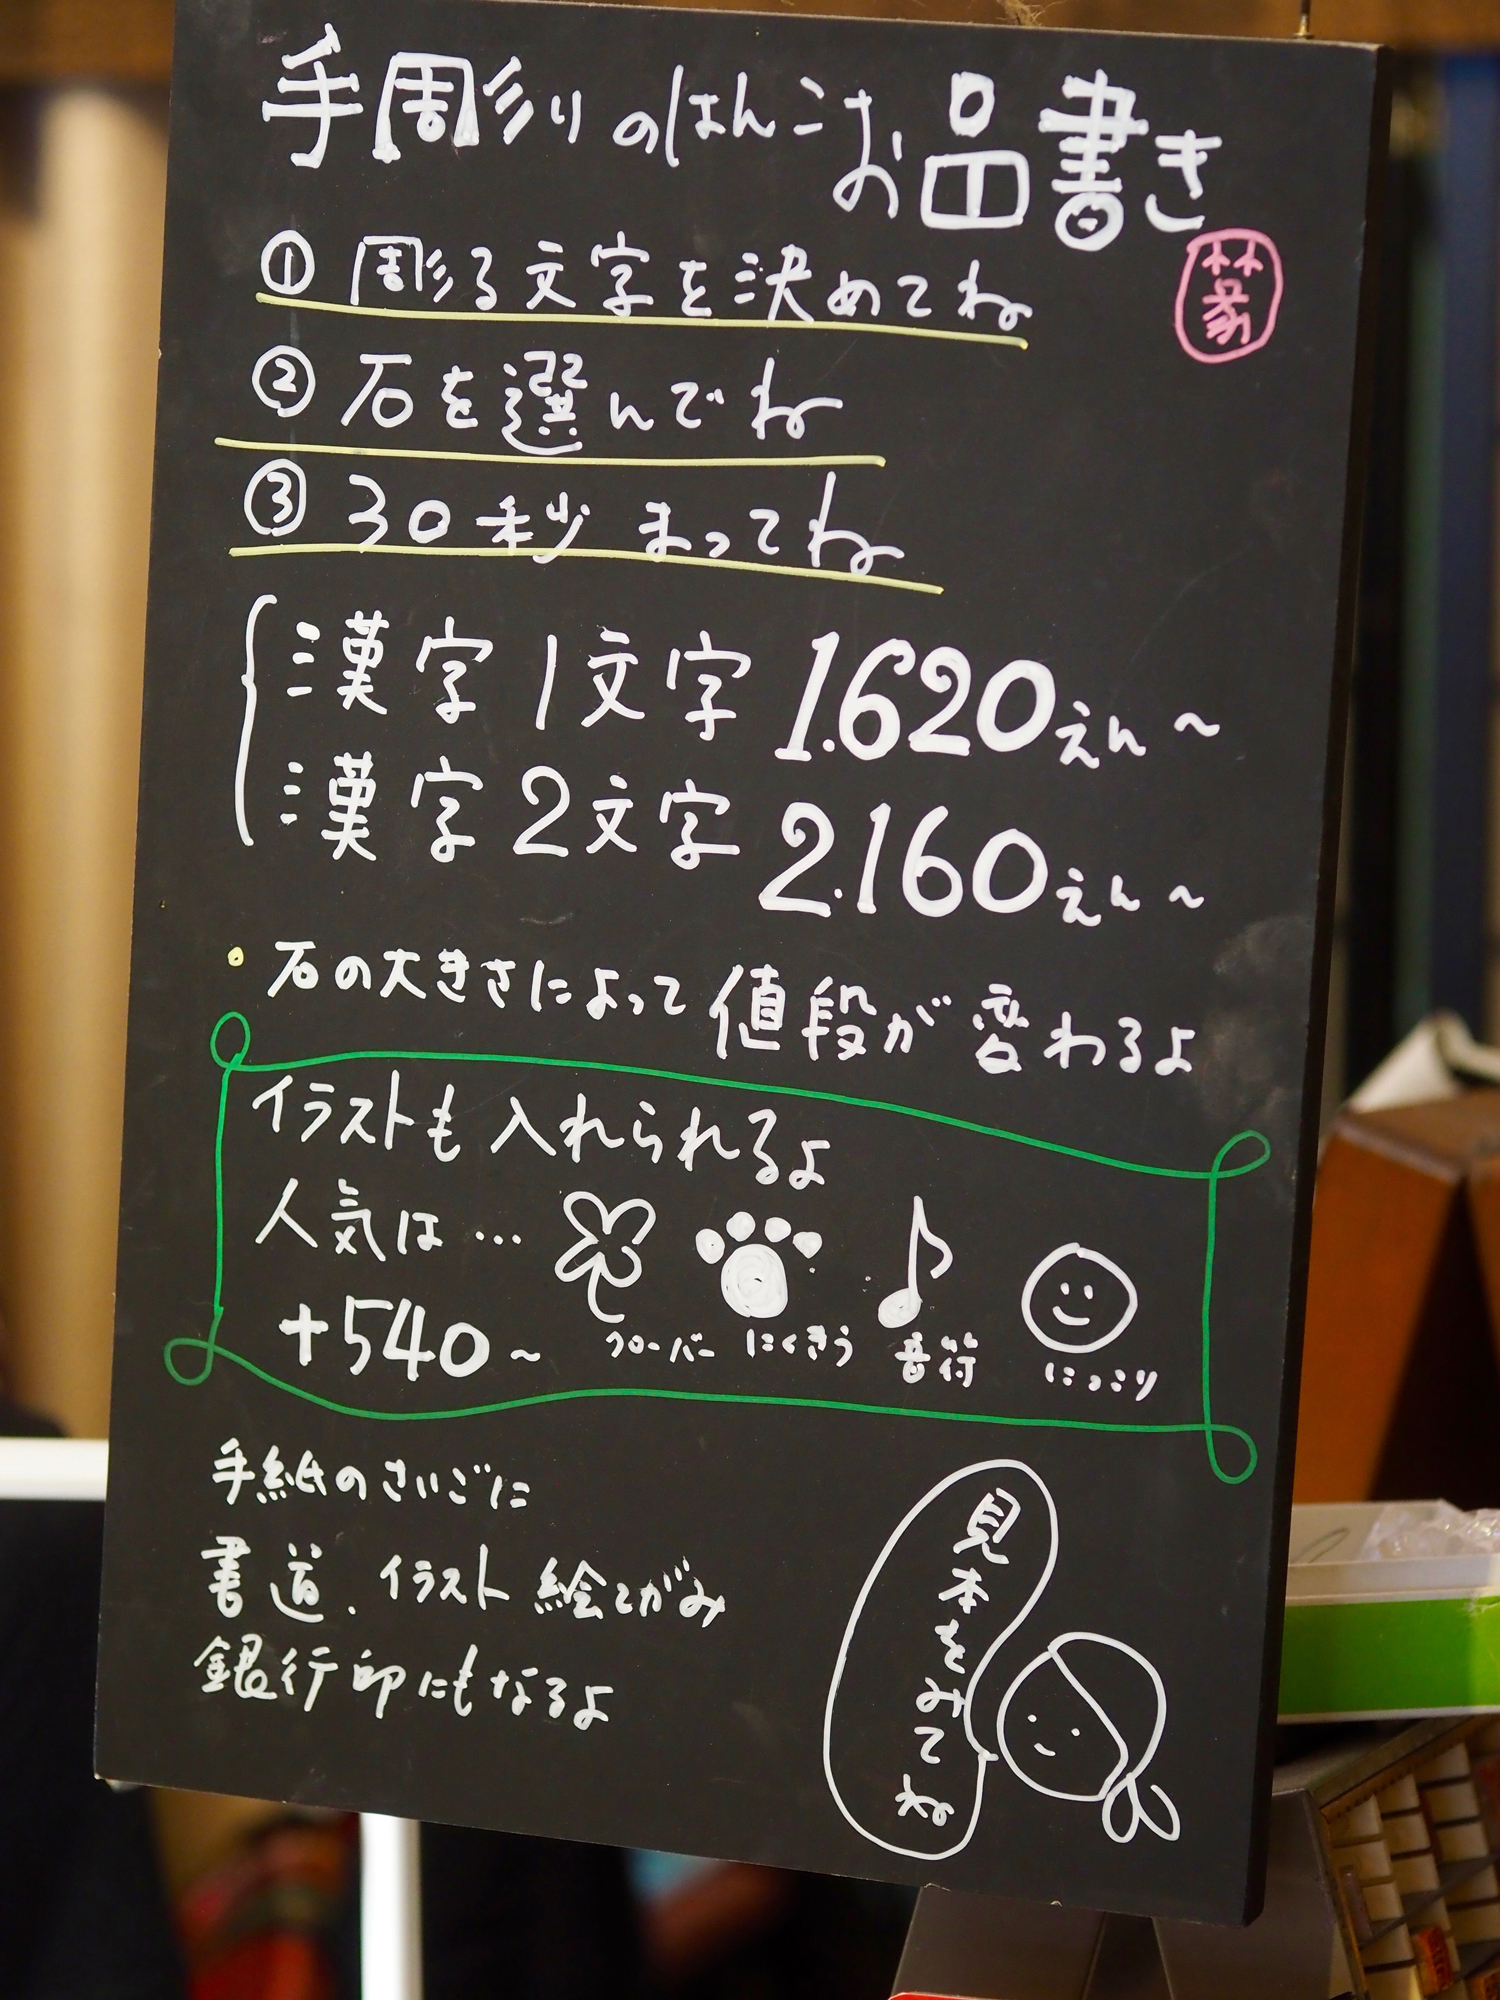 手彫りのはんこ
お品書き
①彫る文字を決めてね
②石を選んでね
③30秒 まってね
漢字1文字 1.620えん～
漢字2文字 2.160えん～
・石の大きさによって値段が変わるよ
イラストも入れられるよ
人気は…
クローバー にくきう 音符 にっこり
+540～
手紙のさいごに
書道、イラスト 絵てがみ
銀行印にもなるよ
見本をみてね